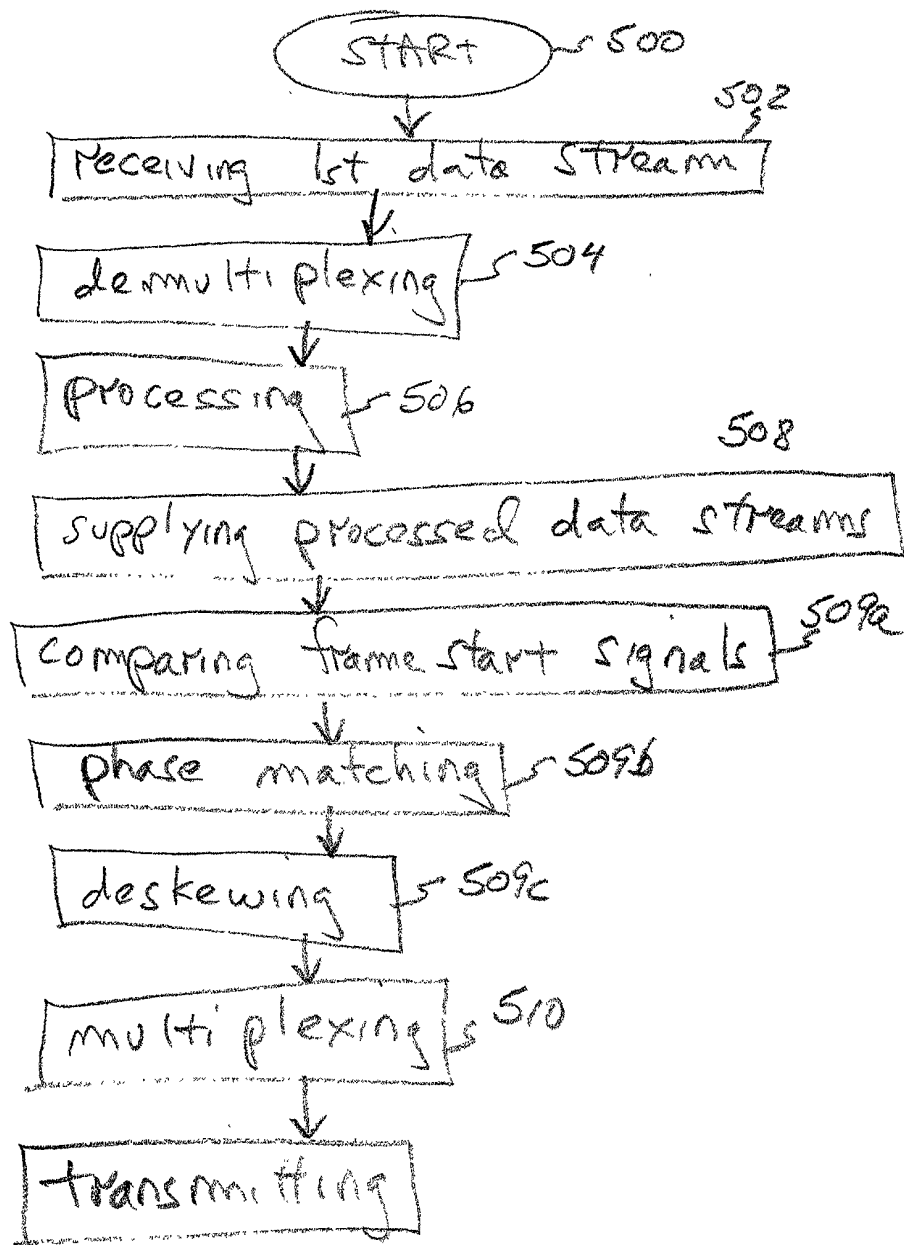 START 500
502
receiving 1st data stream
demultiplexing 504
processing 506
508
supplying processed data streams
comparing frame start signals 509a
phase matching 509b
deskewing 509c
multiplexing 510
transmitting